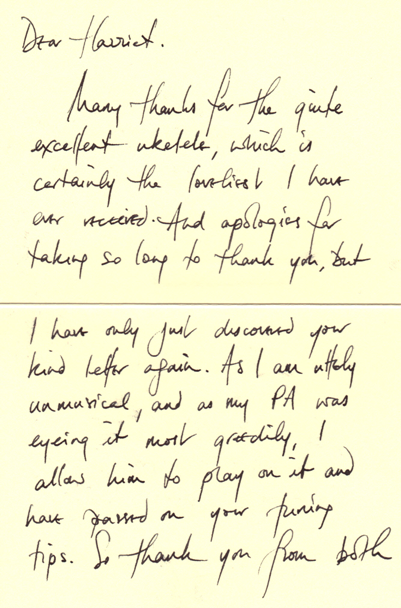 Dear Harriet.
Many thanks for the quite
excellent ukelele, which is
certainly the loveliest I have
ever received. And apologies for
taking so long to thank you, but
I have only just discovered your
kind letter again. As I am utterly
unmusical, and as my PA was
eyeing it most greedily, I
allow him to play on it and
have passed on your tuning
tips. So thank you from both